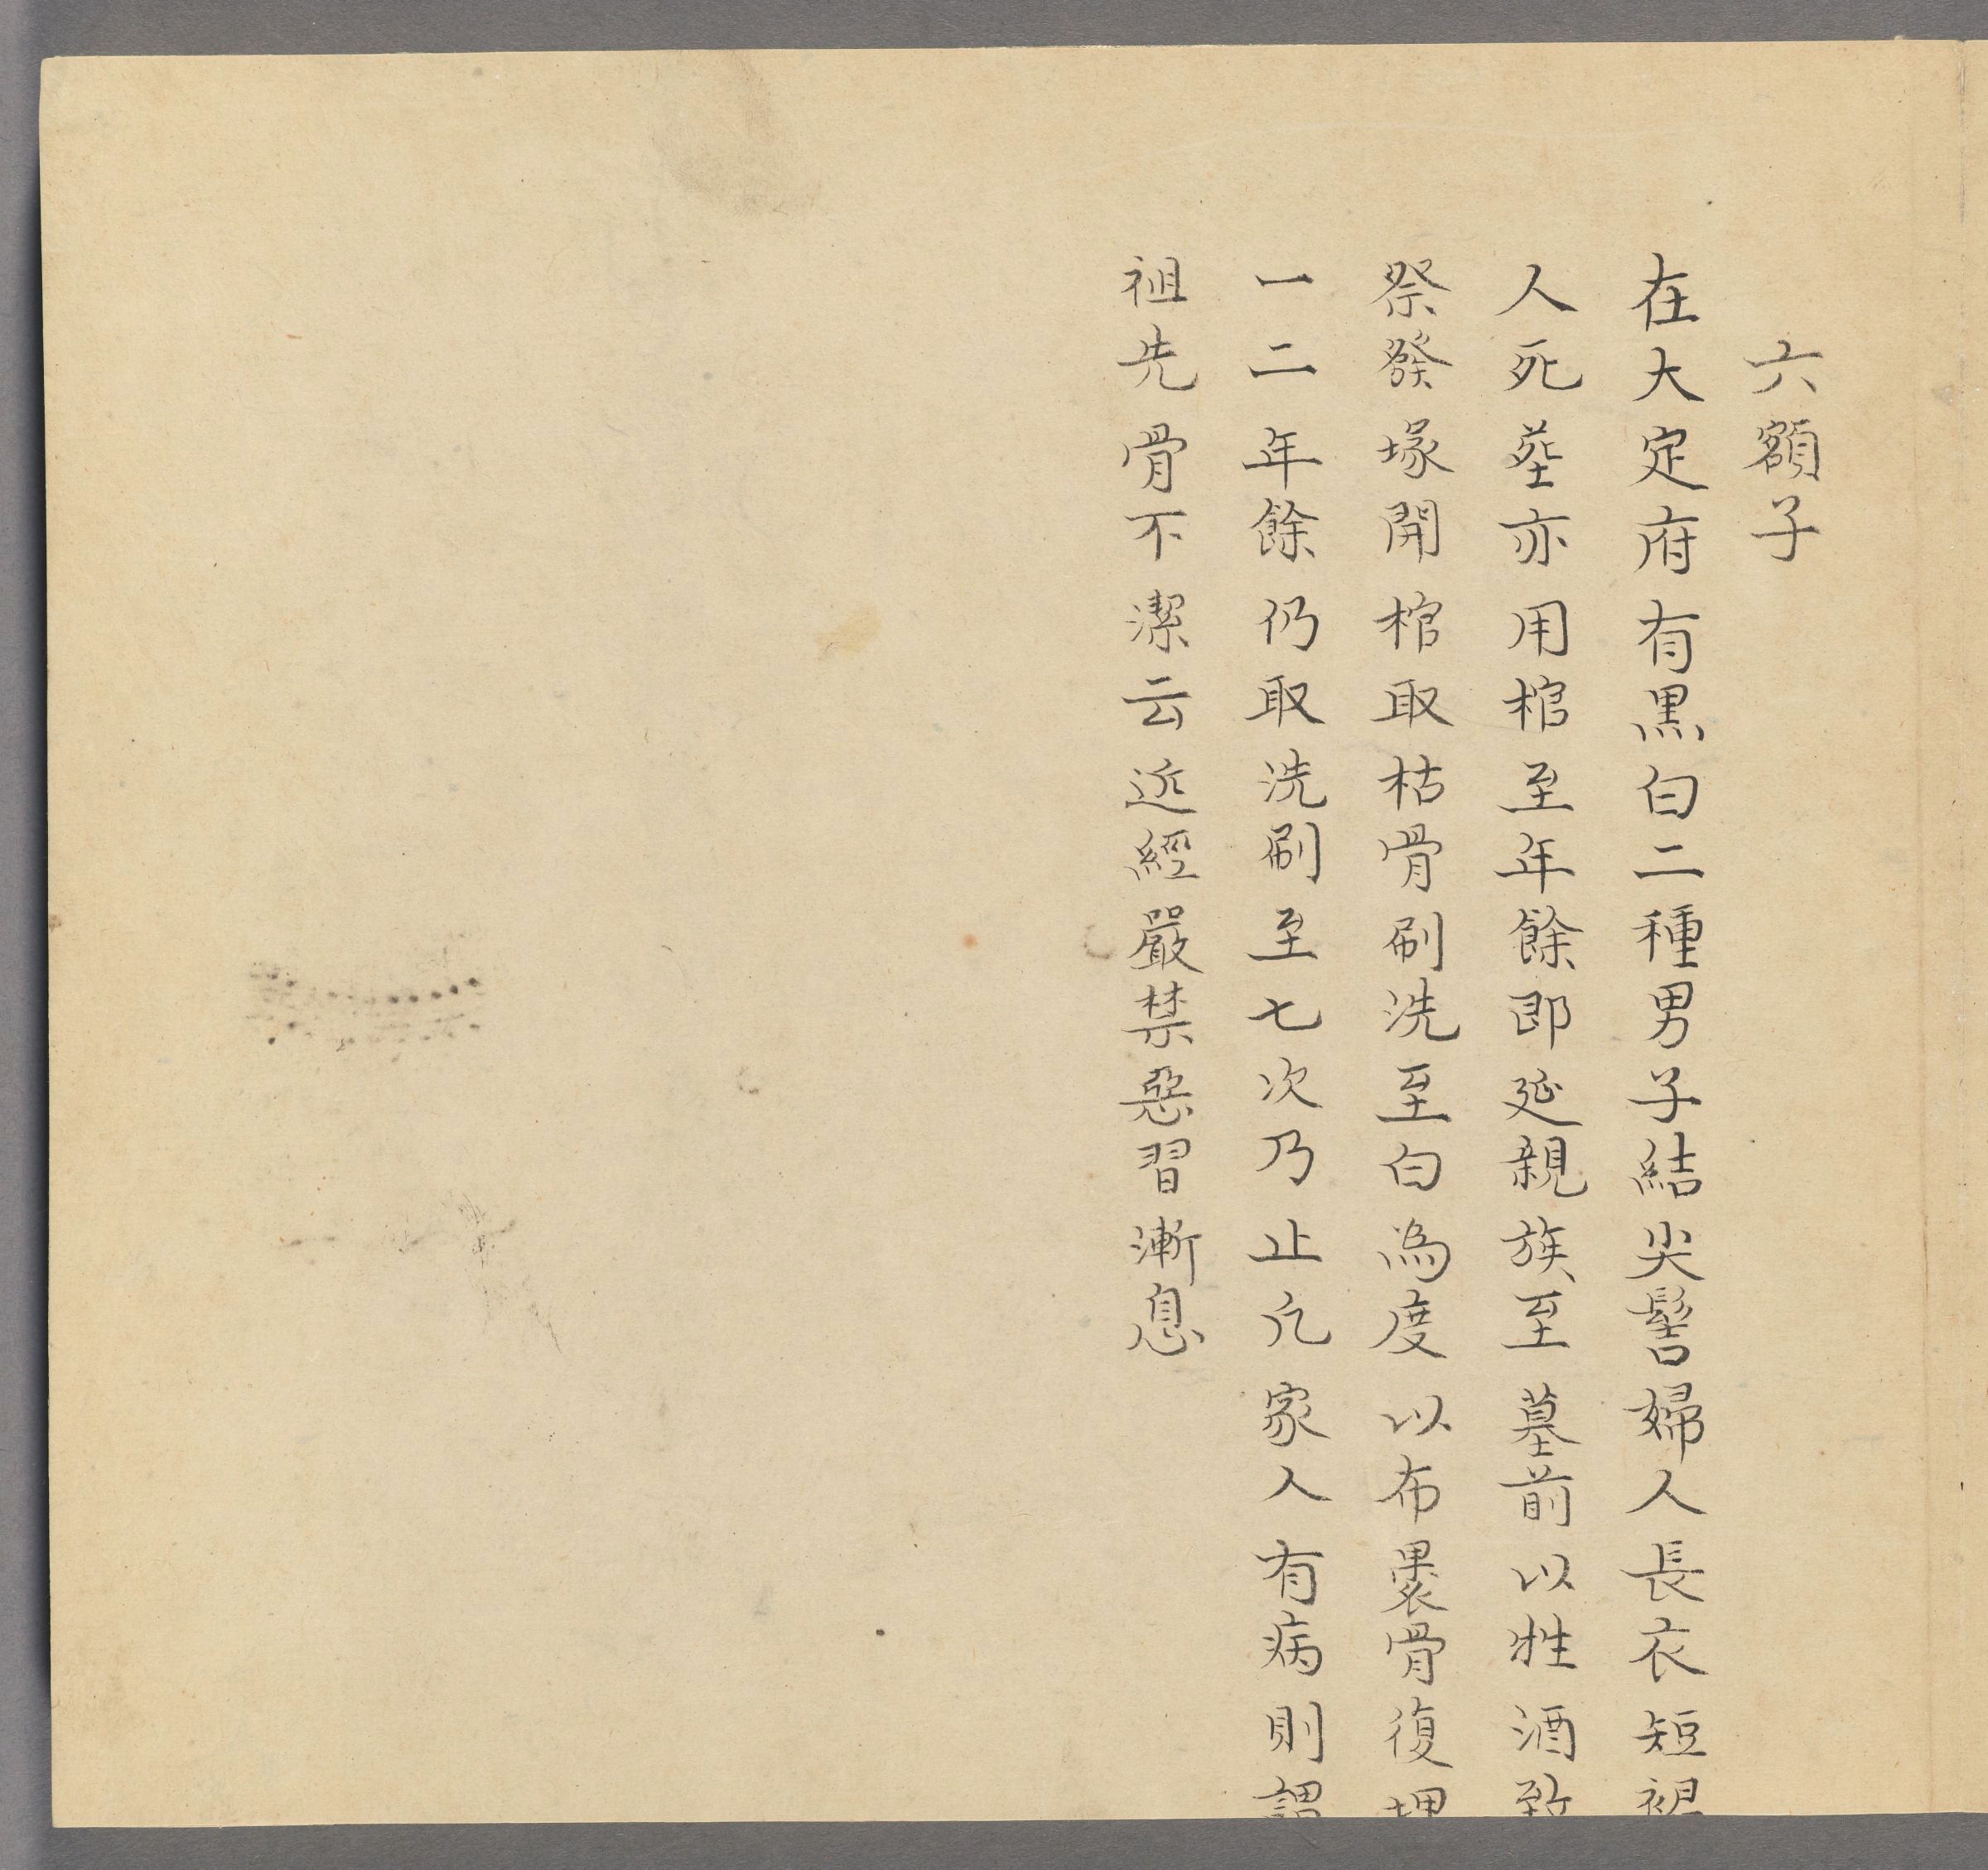 六額子
在大定府有黒白二種男子結尖髻婦人長衣短
人死塟亦用棺至年餘即延親族至墓前以牲酒致
祭發塚開棺取枯骨刷洗至白為度以布裹骨復埋
一二年餘仍取洗刷至七次乃止凢家人有病則謂
祖先骨不潔云近經嚴禁惡習漸息